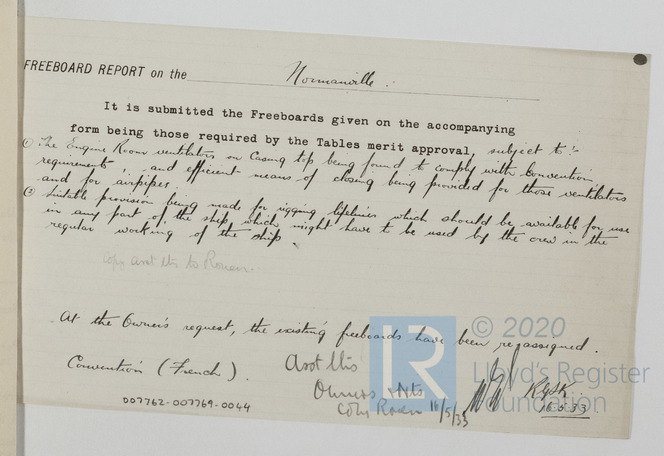 FREEBOARD REPORT on the Normanville.
It is submitted the Freeboards given on the accompanying
form being those required by the Tables merit approval, subject to :-
① The Engine Room ventilators on Casing top being found to comply with Convention
requirements, and efficient means of closing being provided for those ventilators
and for airpipes.
② Suitable provision being made for rigging lifelines which should be available for use
in any part of the ship which might have to be used by the crew in the
regular working of the ship.
Copy to Rouen.
At the Owner's request, the existing freeboards have been reassigned.
Convention (French).
Owners
Copy Rouen 16/5/33
16.5.33
007762-007769-0044
© 2020
LR
Lloyd's Register
Foundation